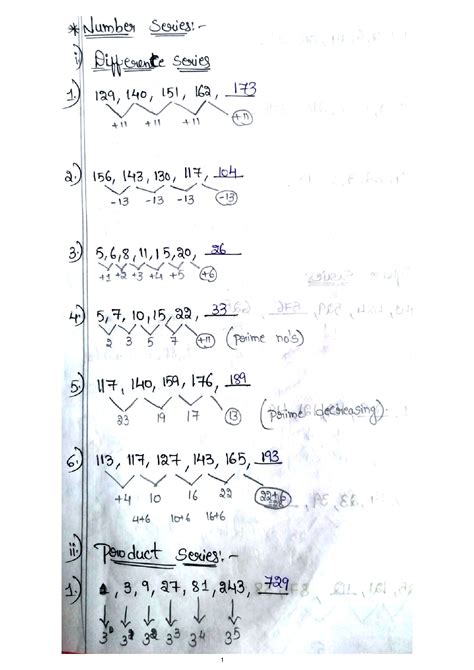 * Number Series:-
i) Difference Series
1.) 129, 140, 151, 162, 173
+11 +11 +11 +11
2.) 156, 143, 130, 117, 104
-13 -13 -13 -13
3.) 5, 6, 8, 11, 15, 20, 26
+1 +2 +3 +4 +5 +6
4.) 5, 7, 10, 15, 22, 33
2 3 5 7 +11 (prime no's)
5.) 117, 140, 159, 176, 189
23 19 17 13 (prime decreasing).
6.) 113, 117, 127, 143, 165, 193
+4 10 16 22 22+6
4+6 10+6 16+6
ii. Product Series:-
1.) 1, 3, 9, 27, 81, 243, 729
3⁰ 3² 3² 3³ 3⁴ 3⁵
1